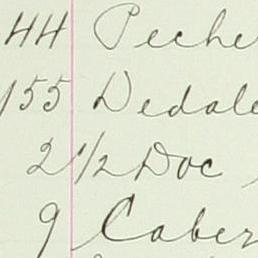 44 Peche
155 Dedale
2 1/2 Doc
9 Caber